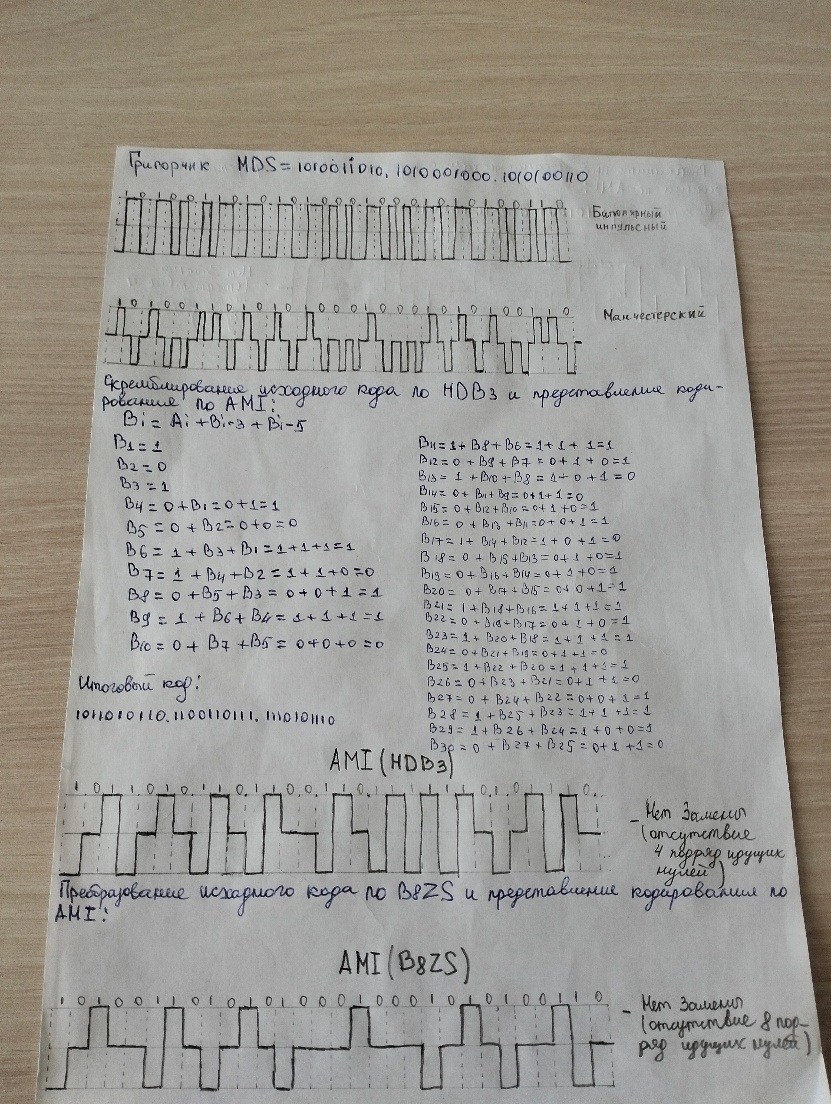 Григорчик MDS = 1010011010, 1010001000. 1010100110
1 0 1 0 0 1 1 0 1 0 1 0 1 0 0 0 1 0 0 0 1 0 1 0 1 0 0 1 1 0
Биполярный
импульсный
1 0 1 0 0 1 1 0 1 0 1 0 1 0 0 0 1 0 0 0 1 0 1 0 1 0 0 1 1 0
Манчестерский
Скремблирование исходного кода по HDB3 и представление коди-
рования по AMI:
Bi = Ai + Bi-3 + Bi-5
B1 = 1
B2 = 0
B3 = 1
B4 = 0 + B1 = 0 + 1 = 1
B5 = 0 + B2 = 0 + 0 = 0
B6 = 1 + B3 + B1 = 1 + 1 + 1 = 1
B7 = 1 + B4 + B2 = 1 + 1 + 0 = 0
B8 = 0 + B5 + B3 = 0 + 0 + 1 = 1
B9 = 1 + B6 + B4 = 1 + 1 + 1 = 1
B10 = 0 + B7 + B5 = 0 + 0 + 0 = 0
B11 = 1 + B8 + B6 = 1 + 1 + 1 = 1
B12 = 0 + B9 + B7 = 0 + 1 + 0 = 1
B13 = 1 + B10 + B8 = 1 + 0 + 1 = 0
B14 = 0 + B11 + B9 = 0 + 1 + 1 = 0
B15 = 0 + B12 + B10 = 0 + 1 + 0 = 1
B16 = 0 + B13 + B11 = 0 + 0 + 1 = 1
B17 = 1 + B14 + B12 = 1 + 0 + 1 = 0
B18 = 0 + B15 + B13 = 0 + 1 + 0 = 1
B19 = 0 + B16 + B14 = 0 + 1 + 0 = 1
B20 = 0 + B17 + B15 = 0 + 0 + 1 = 1
B21 = 1 + B18 + B16 = 1 + 1 + 1 = 1
B22 = 0 + B19 + B17 = 0 + 1 + 0 = 1
B23 = 1 + B20 + B18 = 1 + 1 + 1 = 1
B24 = 0 + B21 + B19 = 0 + 1 + 1 = 0
B25 = 1 + B22 + B20 = 1 + 1 + 1 = 1
B26 = 0 + B23 + B21 = 0 + 1 + 1 = 0
B27 = 0 + B24 + B22 = 0 + 0 + 1 = 1
B28 = 1 + B25 + B23 = 1 + 1 + 1 = 1
B29 = 1 + B26 + B24 = 1 + 0 + 0 = 1
B30 = 0 + B27 + B25 = 0 + 1 + 1 = 0
Итоговый код:
1011010110. 1100110111. 1110101110
AMI (HDB3)
1 0 1 1 0 1 0 1 1 0 1 1 0 0 1 1 0 1 1 1 1 1 1 0 1 0 1 1 1 0
- Нет Замены
(отсутствие
4 подряд идущих
нулей)
Преобразование исходного кода по B8ZS и представление кодирования по
AMI:
AMI (B8ZS)
1 0 1 0 0 1 1 0 1 0 1 0 1 0 0 0 1 0 0 0 1 0 1 0 1 0 0 1 1 0
- Нет Замены
(отсутствие 8 под-
ряд идущих нулей)